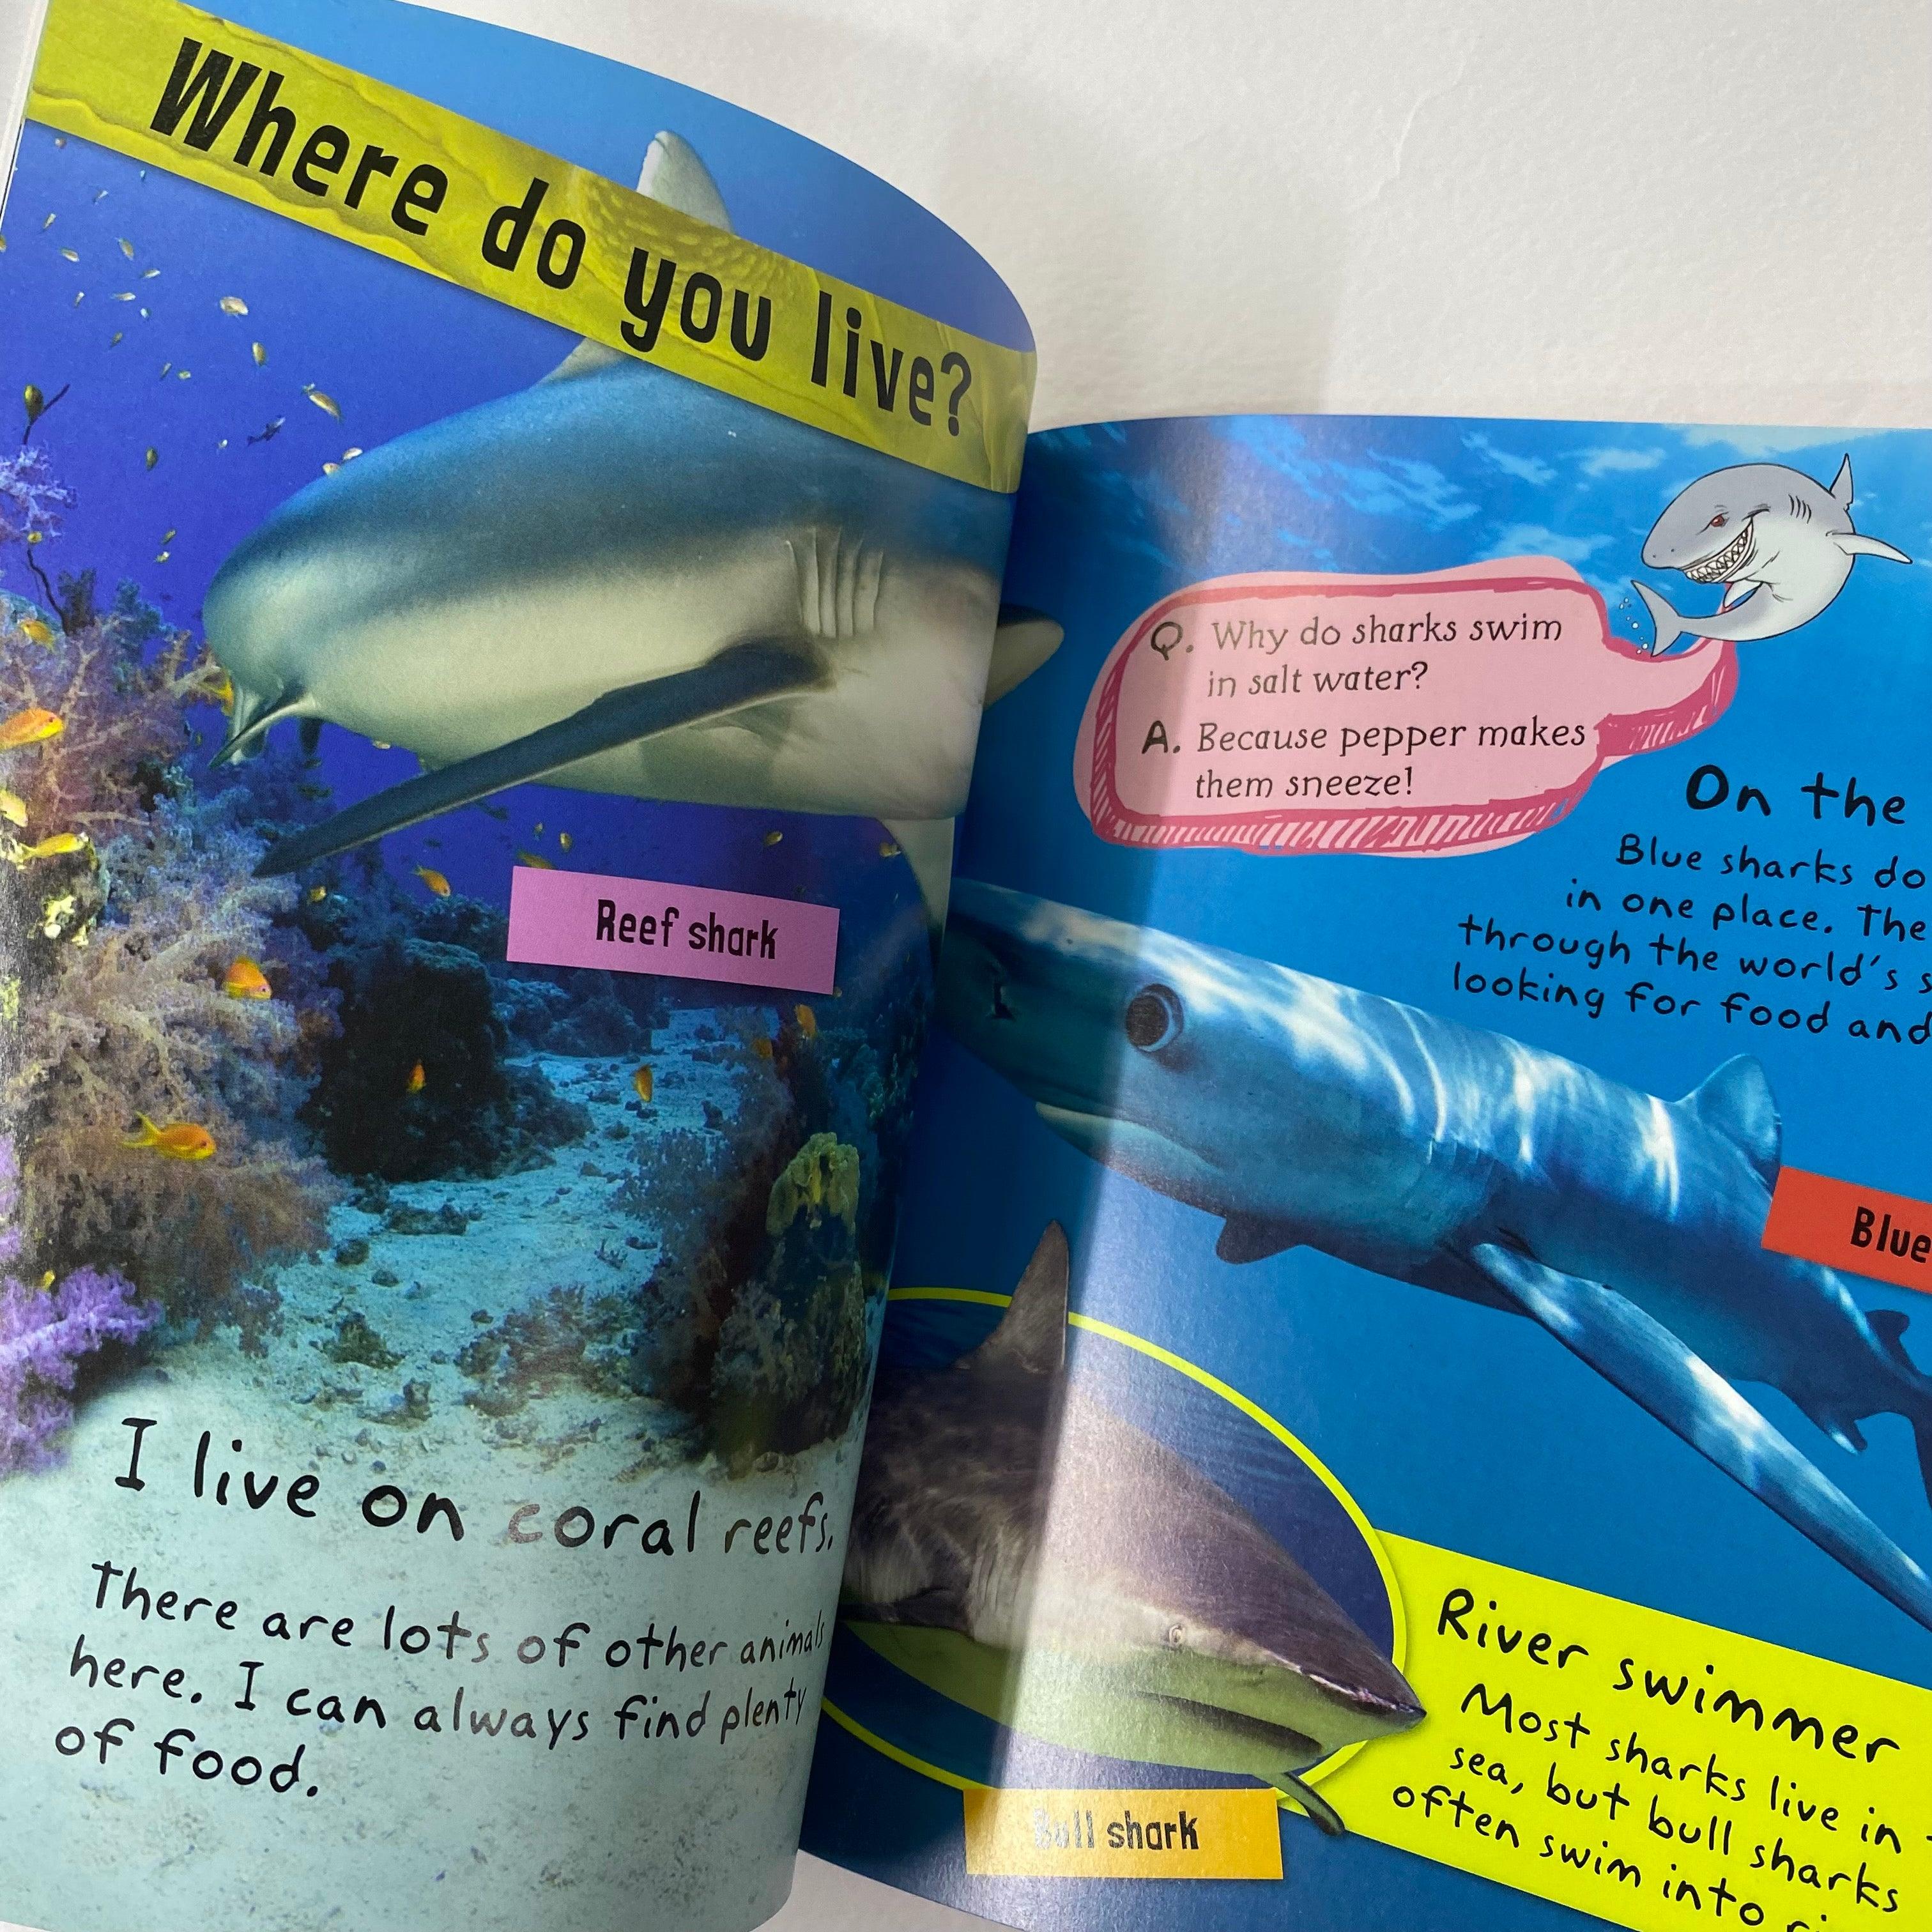 Where do you live?
Reef shark
I live on coral reefs.
There are lots of other animals
here. I can always find plenty
of food.
Q. Why do sharks swim
in salt water?
A. Because pepper makes
them sneeze!
On the
Blue sharks do
in one place. The
through the world's s
looking for food and
Blue
Bull shark
River swimmer
Most sharks live in
sea, but bull sharks
often swim into ri